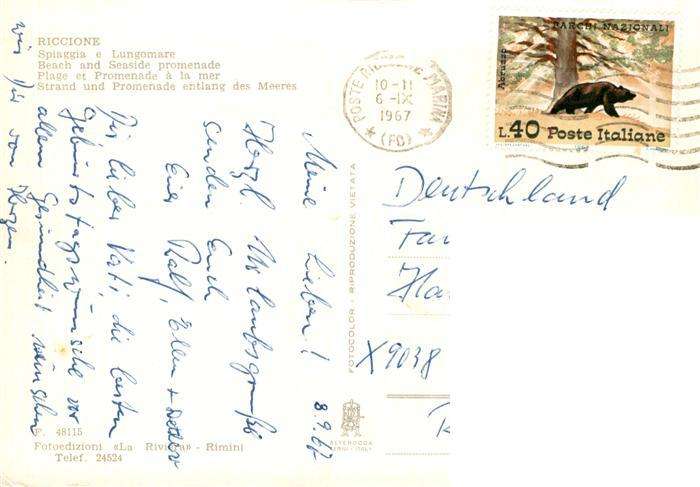 RICCIONE
Spiaggia e Lungomare
Beach and Seaside promenade
Plage et Promenade à la mer
Strand und Promenade entlang des Meeres
POSTE RICCIONE MARINA
10-11
6-IX
1967
(FO)
PARCHI NAZIONALI
Abruzzo
L.40 Poste Italiane
8.9.67
Meine Lieben!
Herzl. Urlaubsgrüße
senden Euch
Eure Ralf, Ellen +
Dir, lieber Vati, die besten
Geburtstagswünsche vor
allem Gesundheit wünschen
wir Dir von Herzen.
FOTOCOLOR - RIPRODUZIONE VIETATA
Deutschland
Fam
Ha
X9038
K
F. 48115
Fotoedizioni «La Riviera» - Rimini
Telef. 24524
ALTEROCCA
TERNI - ITALY